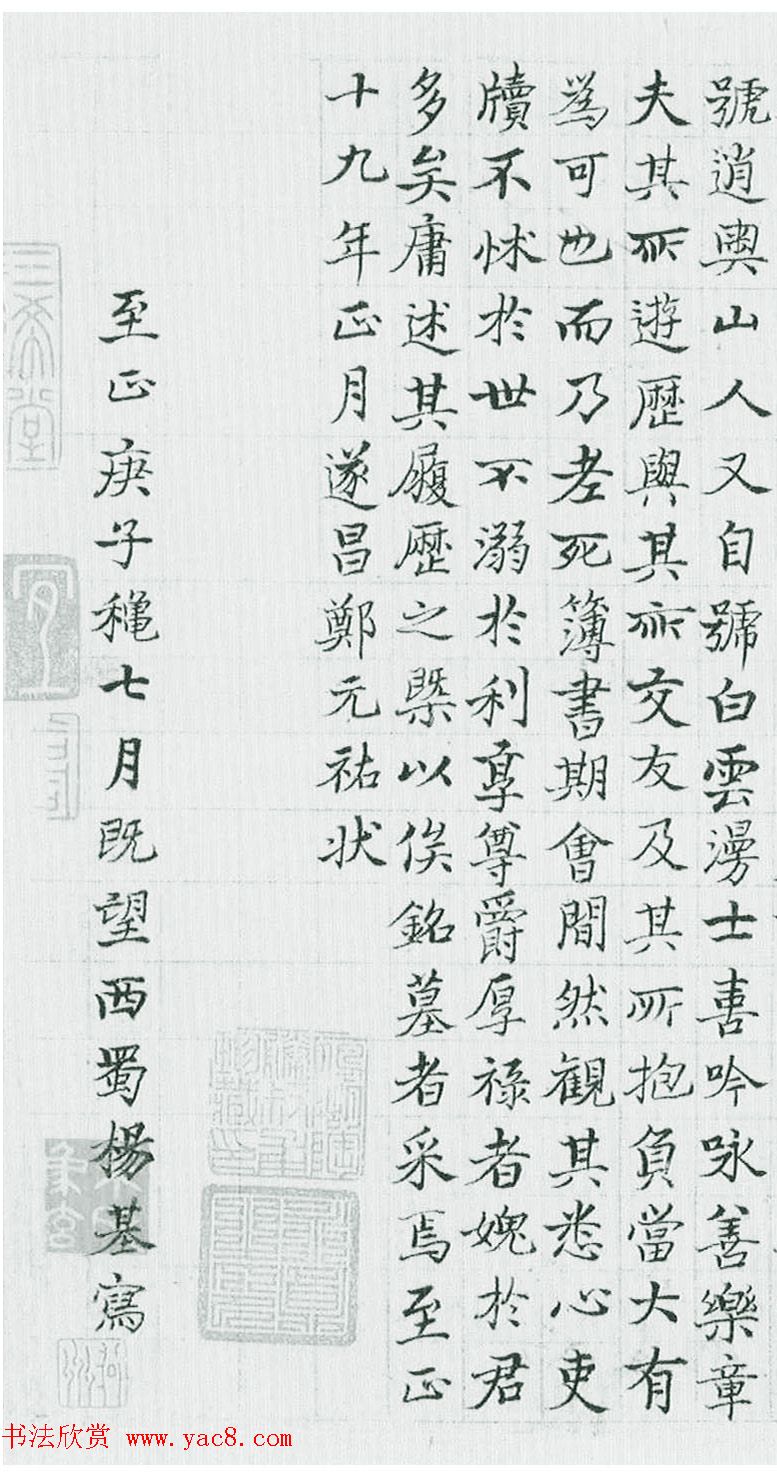 號逍輿山人又自號白雲漫士喜吟咏善樂章
夫其所遊歷與其所交友及其所抱負當大有
為可也而乃老死簿書期會間然觀其悉心吏
牘不怵於世不溺於利享尊爵厚祿者媿於君
多矣庸述其履歷之槩以俟銘墓者采焉至正
十九年正月遂昌鄭元祐状
至正庚子穐七月既望西蜀楊基寫
三希堂
书法欣赏 www.yac8.com